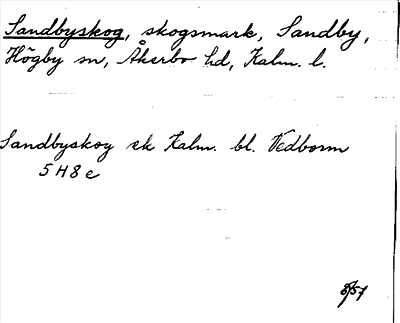 Sandbyskog, skogsmark, Sandby,
Högby sn, Åkerbo hd, Kalm. l.
Sandbyskog ek Kalm. bl. Vedborm
5 H 8 e
8/57